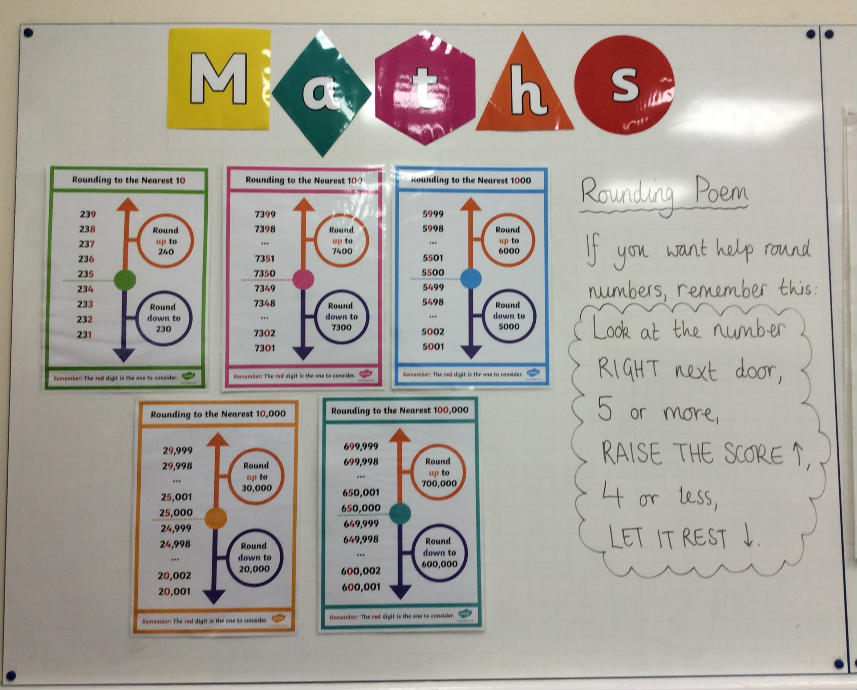 Maths
Rounding to the Nearest 10
239
238
237
236
235
234
233
232
231
Round
up to
240
Round
down to
230
Remember: The red digit is the one to consider.
Rounding to the Nearest 100
7399
7398
...
7351
7350
7349
7348
...
7302
7301
Round
up to
7400
Round
down to
7300
Remember: The red digit is the one to consider.
Rounding to the Nearest 1000
5999
5998
...
5501
5500
5499
5498
...
5002
5001
Round
up to
6000
Round
down to
5000
Remember: The red digit is the one to consider.
Rounding to the Nearest 10,000
29,999
29,998
...
25,001
25,000
24,999
24,998
...
20,002
20,001
Round
up to
30,000
Round
down to
20,000
Remember: The red digit is the one to consider.
Rounding to the Nearest 100,000
699,999
699,998
...
650,001
650,000
649,999
649,998
...
600,002
600,001
Round
up to
700,000
Round
down to
600,000
Remember: The red digit is the one to consider.
Rounding Poem
If you want help round
numbers, remember this:
Look at the number
RIGHT next door,
5 or more,
RAISE THE SCORE ↑,
4 or less,
LET IT REST ↓.